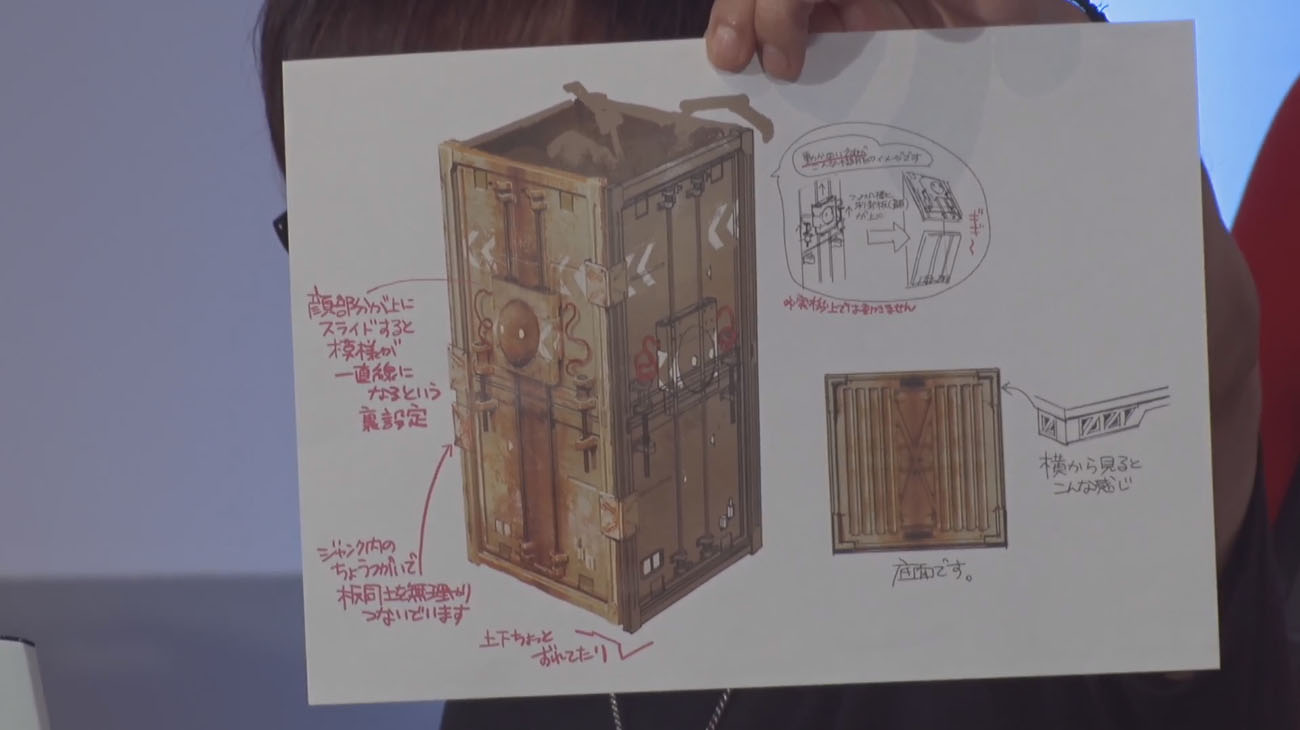 顔部分が上に
スライドすると
模様が
一直線に
なるという
裏設定
ジャンク内の
ちょうつがいで
板同士を無理やり
つないでいます
ちょっと
ずれてたり
のイメージです
が上に
ギギ〜
※実機上では動きません
横から見ると
こんな感じ
底面です。